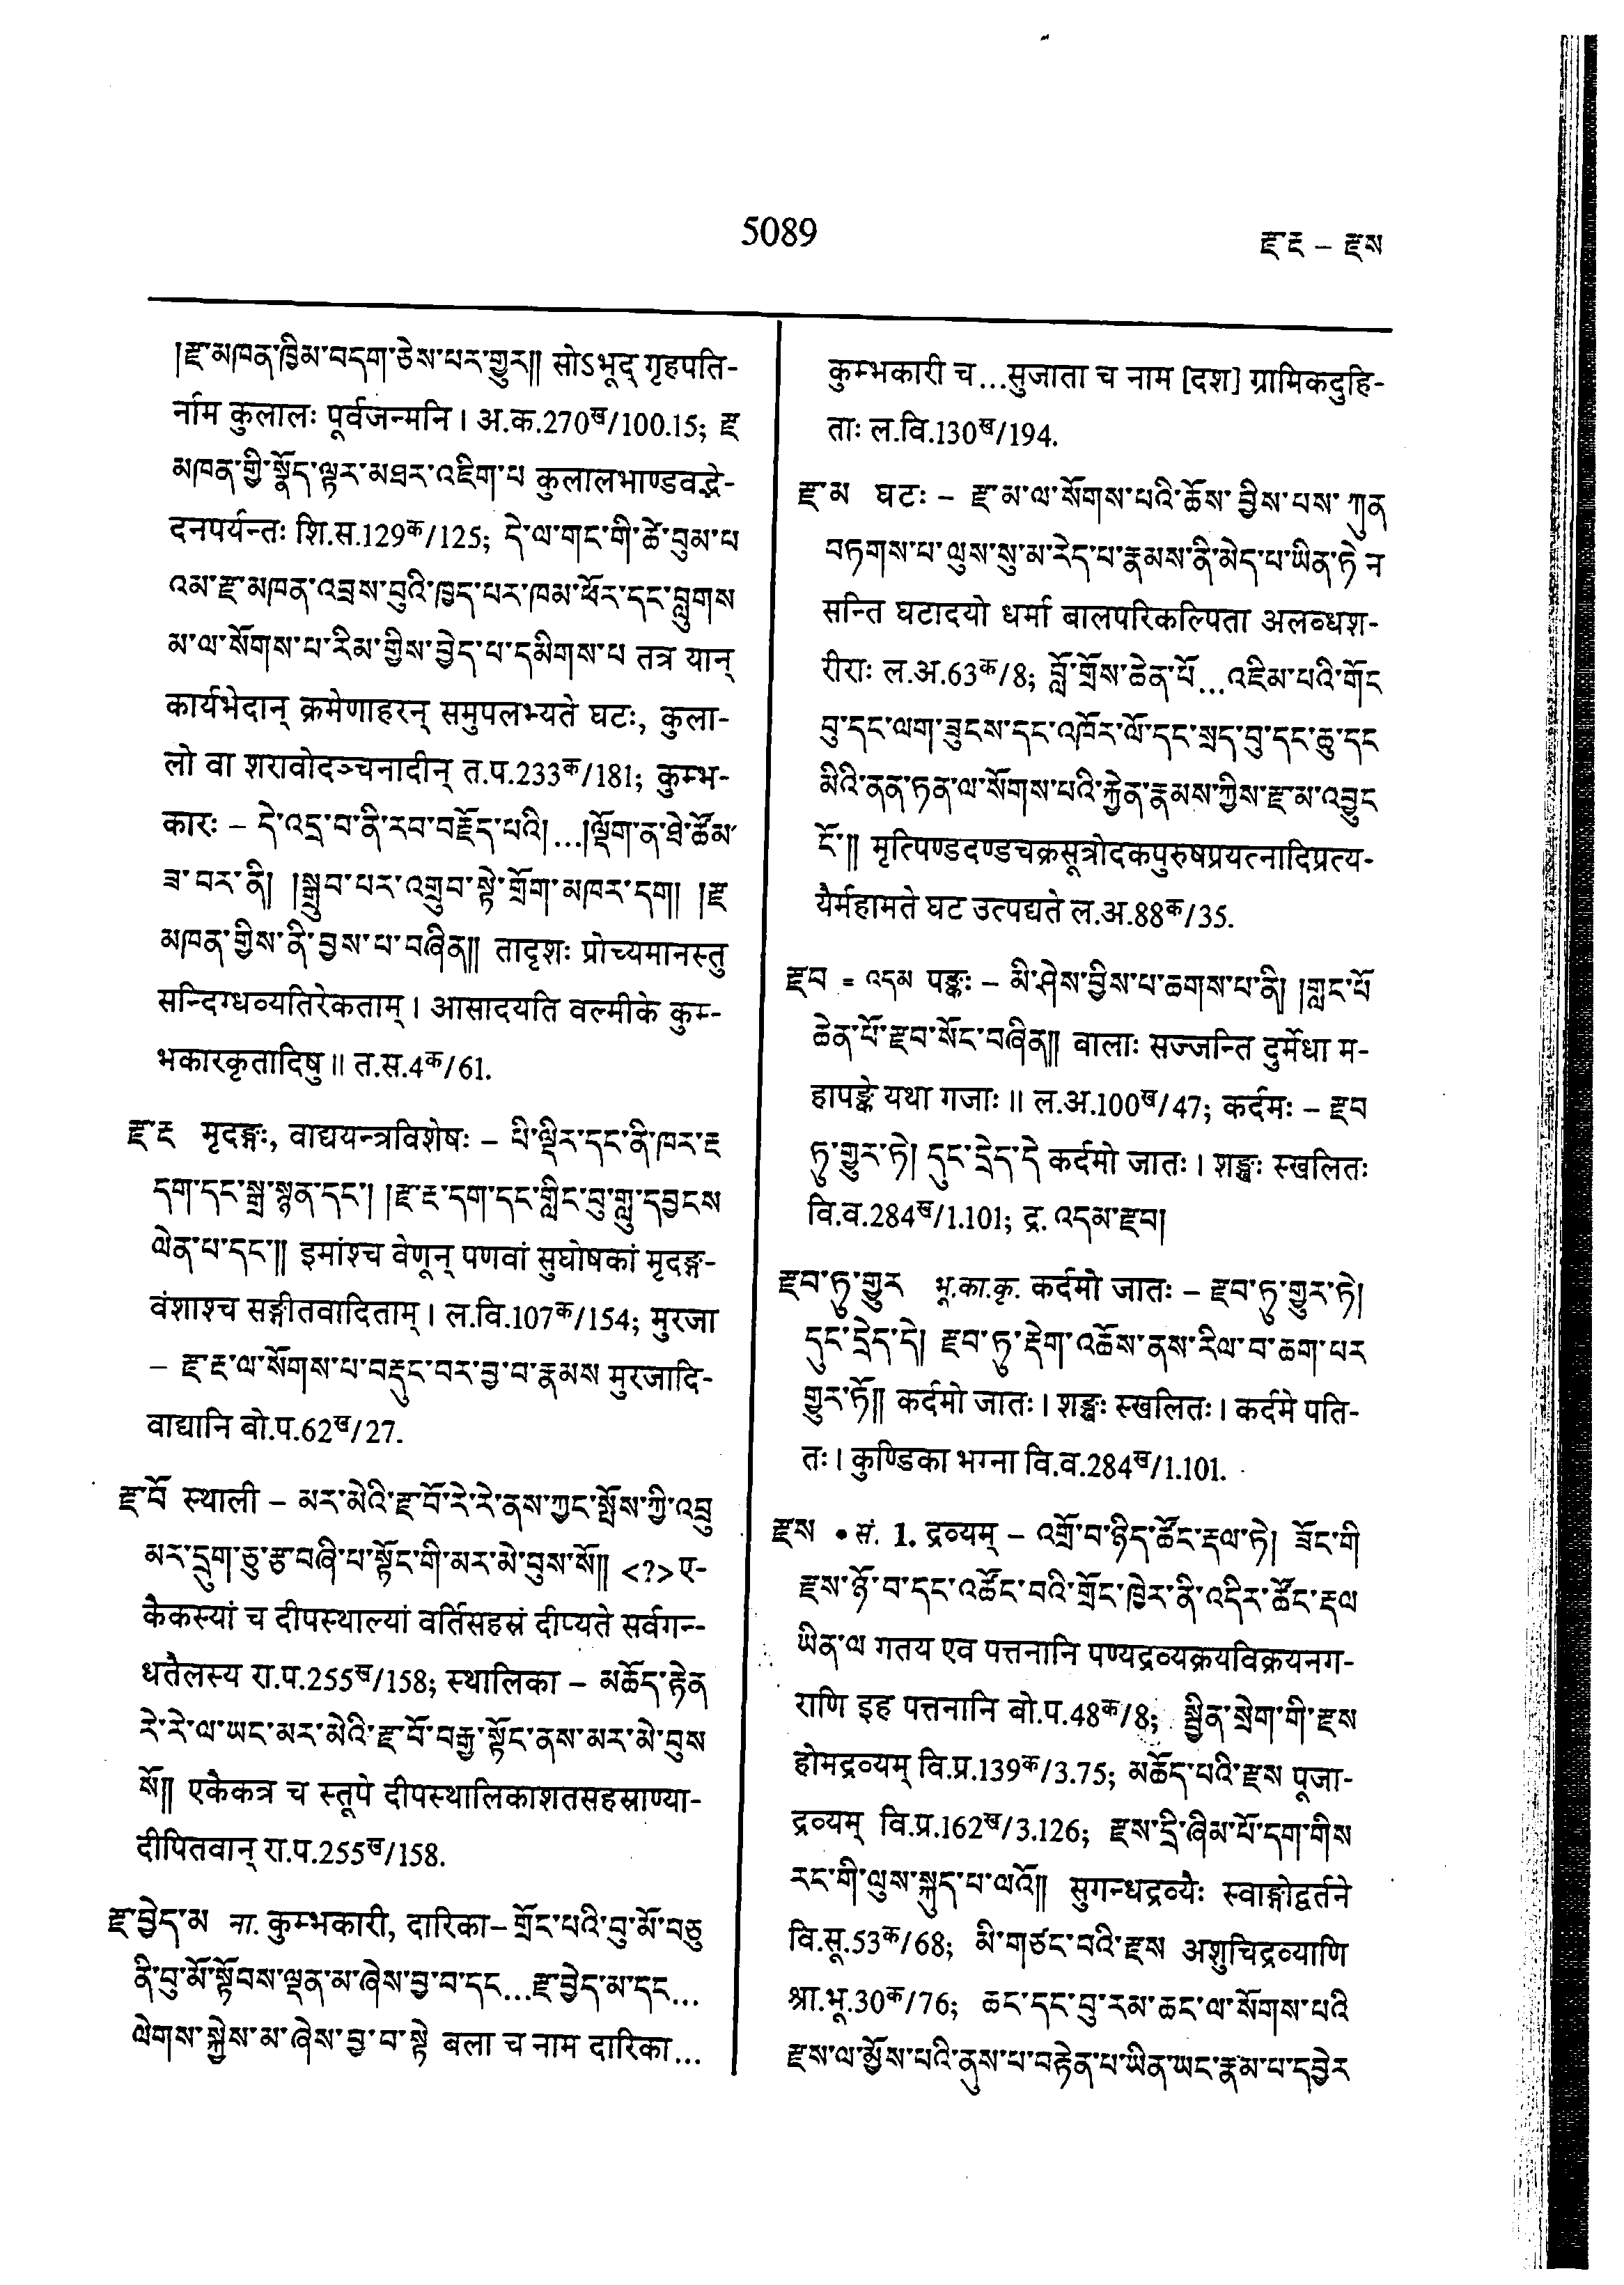 5089
རྫ་རྔ – རྫས
།རྫ་མཁན་ཁྱིམ་བདག་ཅེས་པར་གྱུར།། सोऽभूद् गृहपति-
र्नाम कुलालः पूर्वजन्मनि । अ.क.270ख/100.15; རྫ
མཁན་གྱི་སྣོད་ལྟར་མཐར་འཇིག་པ कुलालभाण्डवद्भे-
दनपर्यन्तः शि.स.129क/125; དེ་ལ་གང་གི་ཚེ་བུམ་པ
འམ་རྫ་མཁན་འབྲས་བུའི་ཁྱད་པར་ཁམ་ཕོར་དང་བླུགས
མ་ལ་སོགས་པ་རིམ་གྱིས་བྱེད་པ་དམིགས་པ तत्र यान्
कार्यभेदान् क्रमेणाहरन् समुपलभ्यते घटः, कुला-
लो वा शरावोदञ्चनादीन् त.प.233क/181; कुम्भ-
कारः – དེ་འདྲ་བ་ནི་རབ་བརྗོད་པའི།...།ལྡོག་ན་ཐེ་ཚོམ་
ཟ་བར་ནི། །སྒྲུབ་པར་འགྲུབ་སྟེ་གྲོག་མཁར་དག། །རྫ
མཁན་གྱིས་ནི་བྱས་པ་བཞིན།། तादृशः प्रोच्यमानस्तु
सन्दिग्धव्यतिरेकताम् । आसादयति वल्मीके कुम्-
भकारकृतादिषु ॥ त.स.4क/61.
རྫ་རྔ मृदङ्गः, वाद्ययन्त्रविशेषः – པི་ལྡིར་དང་ནི་ཁར་རྔ
དག་དང་སྒྲ་སྙན་དང་། །རྫ་རྔ་དག་དང་གླིང་བུ་གླུ་དབྱངས
ལེན་པ་དང་།། इमांश्च वेणून् पणवां सुघोषकां मृदङ्ग-
वंशाश्च सङ्गीतवादिताम् । ल.वि.107क/154; मुरजा
– རྫ་རྔ་ལ་སོགས་པ་བརྡུང་བར་བྱ་བ་རྣམས मुरजादि-
वाद्यानि बो.प.62ख/27.
རྫ་བོ स्थाली – མར་མེའི་རྫ་བོ་རེ་རེ་ནས་ཀྱང་སྤོས་ཀྱི་འབྲུ
མར་དྲུག་ཅུ་རྩ་བཞི་པ་སྟོང་གི་མར་མེ་བུས་སོ།། <?> ए-
कैकस्यां च दीपस्थाल्यां वर्तिसहस्रं दीप्यते सर्वगन्-
धतैलस्य रा.प.255ख/158; स्थालिका – མཆོད་རྟེན
རེ་རེ་ལ་ཡང་མར་མེའི་རྫ་བོ་བརྒྱ་སྟོང་ནས་མར་མེ་བུས
སོ།། एकैकत्र च स्तूपे दीपस्थालिकाशतसहस्राण्या-
दीपितवान् रा.प.255ख/158.
རྫ་བྱེད་མ ना. कुम्भकारी, दारिका– གྲོང་པའི་བུ་མོ་བཅུ
ནི་བུ་མོ་སྟོབས་ལྡན་མ་ཞེས་བྱ་བ་དང...རྫ་བྱེད་མ་དང...
ལེགས་སྐྱེས་མ་ཞེས་བྱ་བ་སྟེ बला च नाम दारिका...
कुम्भकारी च...सुजाता च नाम [दश] ग्रामिकदुहि-
ताः ल.वि.130ख/194.
རྫ་མ घटः – རྫ་མ་ལ་སོགས་པའི་ཆོས་བྱིས་པས་ཀུན
བཏགས་པ་ལུས་སུ་མ་རེད་པ་རྣམས་ནི་མེད་པ་ཡིན་ཏེ न
सन्ति घटादयो धर्मा बालपरिकल्पिता अलब्धश-
रीराः ल.अ.63क/8; བློ་གྲོས་ཆེན་པོ...འཇིམ་པའི་གོང
བུ་དང་ལག་ཟུངས་དང་འཁོར་ལོ་དང་སྲད་བུ་དང་ཆུ་དང
མིའི་ནན་ཏན་ལ་སོགས་པའི་རྐྱེན་རྣམས་ཀྱིས་རྫ་མ་འབྱུང
ངོ་།། मृत्पिण्डदण्डचक्रसूत्रोदकपुरुषप्रयत्नादिप्रत्य-
यैर्महामते घट उत्पद्यते ल.अ.88क/35.
རྫབ = འདམ पङ्कः – མི་ཤེས་བྱིས་པ་ཆགས་པ་ནི། །གླང་པོ
ཆེན་པོ་རྫབ་སོང་བཞིན།། बालाः सज्जन्ति दुर्मेधा म-
हापङ्के यथा गजाः ॥ ल.अ.100ख/47; कर्दमः – རྫབ
ཏུ་གྱུར་ཏེ། དུང་དྲེད་དེ कर्दमो जातः । शङ्खः स्खलितः
वि.व.284ख/1.101; द्र. འདམ་རྫབ།
རྫབ་ཏུ་གྱུར भू.का.कृ. कर्दमो जातः – རྫབ་ཏུ་གྱུར་ཏེ།
དུང་དྲེད་དེ། རྫབ་ཏུ་རྡེག་འཆོས་ནས་རིལ་བ་ཆག་པར
གྱུར་ཏོ།། कर्दमो जातः । शङ्खः स्खलितः । कर्दमे पति-
तः । कुण्डिका भग्ना वि.व.284ख/1.101.
རྫས • सं. 1. द्रव्यम् – འགྲོ་བ་ཉིད་ཚོང་རྡལ་ཏེ། ཟོང་གི
རྫས་ཉོ་བ་དང་འཚོང་བའི་གྲོང་ཁྱེར་ནི་འདིར་ཚོང་རྡལ
ཡིན་ལ गतय एव पत्तनानि पण्यद्रव्यक्रयविक्रयनग-
राणि इह पत्तनानि बो.प.48क/8; སྦྱིན་སྲེག་གི་རྫས
होमद्रव्यम् वि.प्र.139क/3.75; མཆོད་པའི་རྫས पूजा-
द्रव्यम् वि.प्र.162ख/3.126; རྫས་དྲི་ཞིམ་པོ་དག་གིས
རང་གི་ལུས་སྐུད་པ་ལའོ།། सुगन्धद्रव्यैः स्वाङ्गोद्वर्तने
वि.सू.53क/68; མི་གཙང་བའི་རྫས अशुचिद्रव्याणि
श्रा.भू.30क/76; ཆང་དང་བུ་རམ་ཆང་ལ་སོགས་པའི
རྫས་ལ་མྱོས་པའི་ནུས་པ་བརྟེན་པ་ཡིན་ཡང་རྣམ་པ་དབྱེར